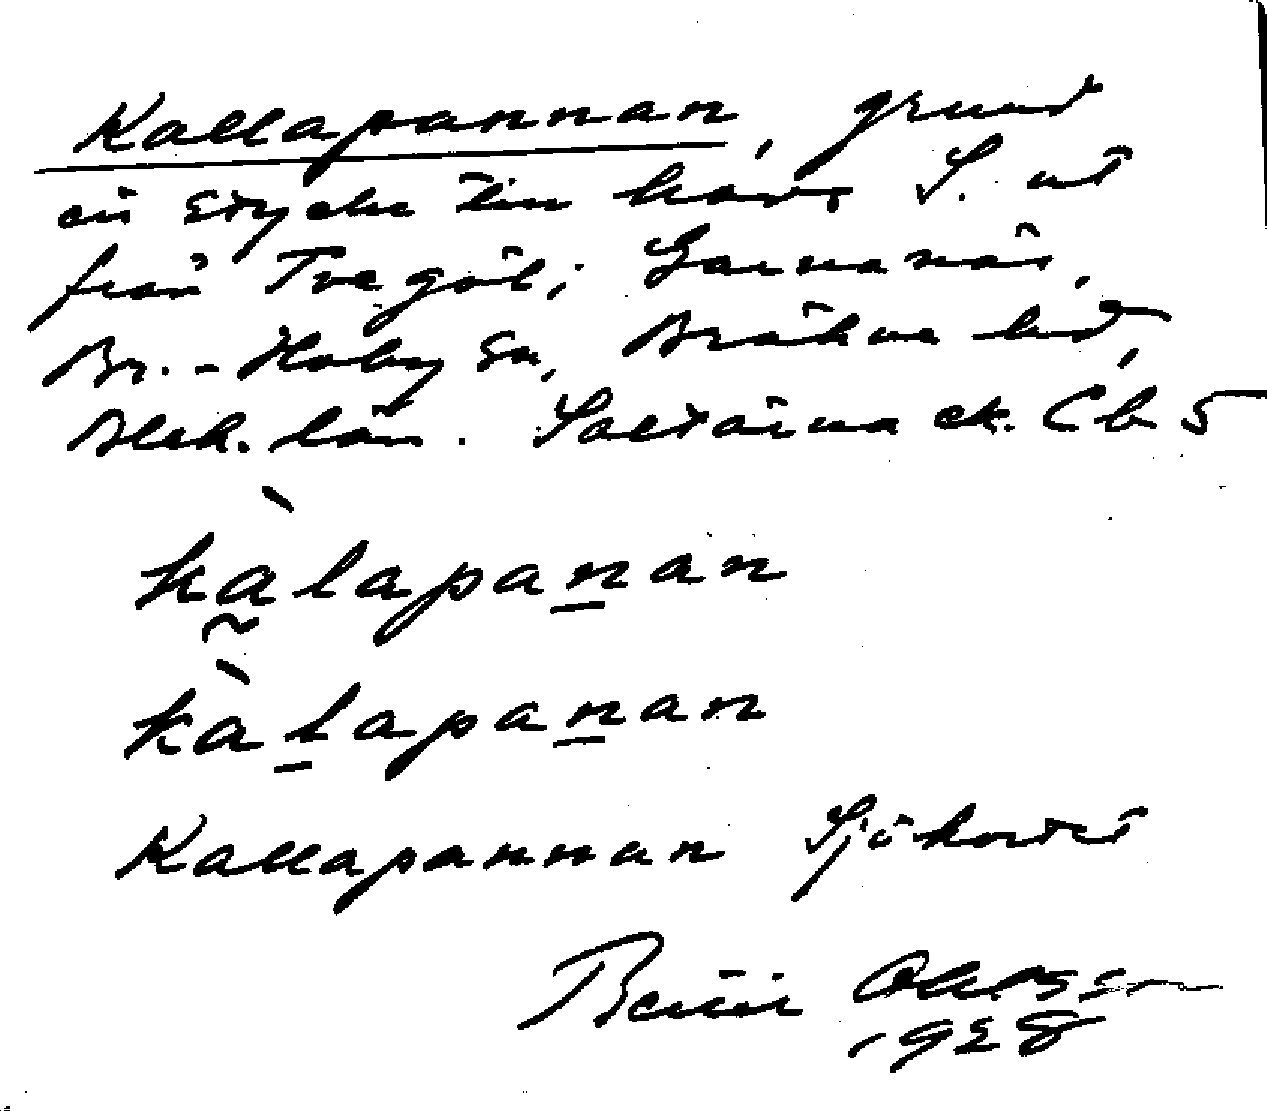 Kallapannan, grund
ett stycke till havs S. ut
från Tvegöl; Garnanäs,
Br.-Hoby sn, Bräkne hd,
Blek. län. Saltärna ek. Cb 5
kàlapanan
kàlapanan
Kallapannan Sjökortet
Bertil Ohlsson
1928